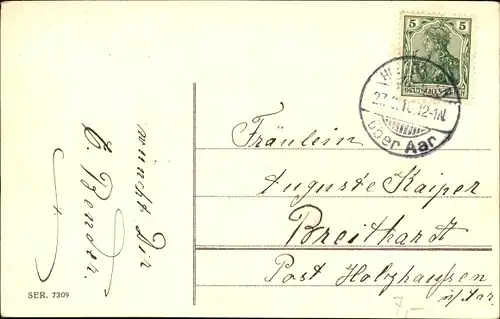 5 5
DEUTSCHES REICH
27. 12-1N.
über Aar
wünscht Dir
E. Bender.
Fräulein
Auguste Kaiper
Breithardt
Post Holzhausen
ü/Aar.
SER. 7309
7,-